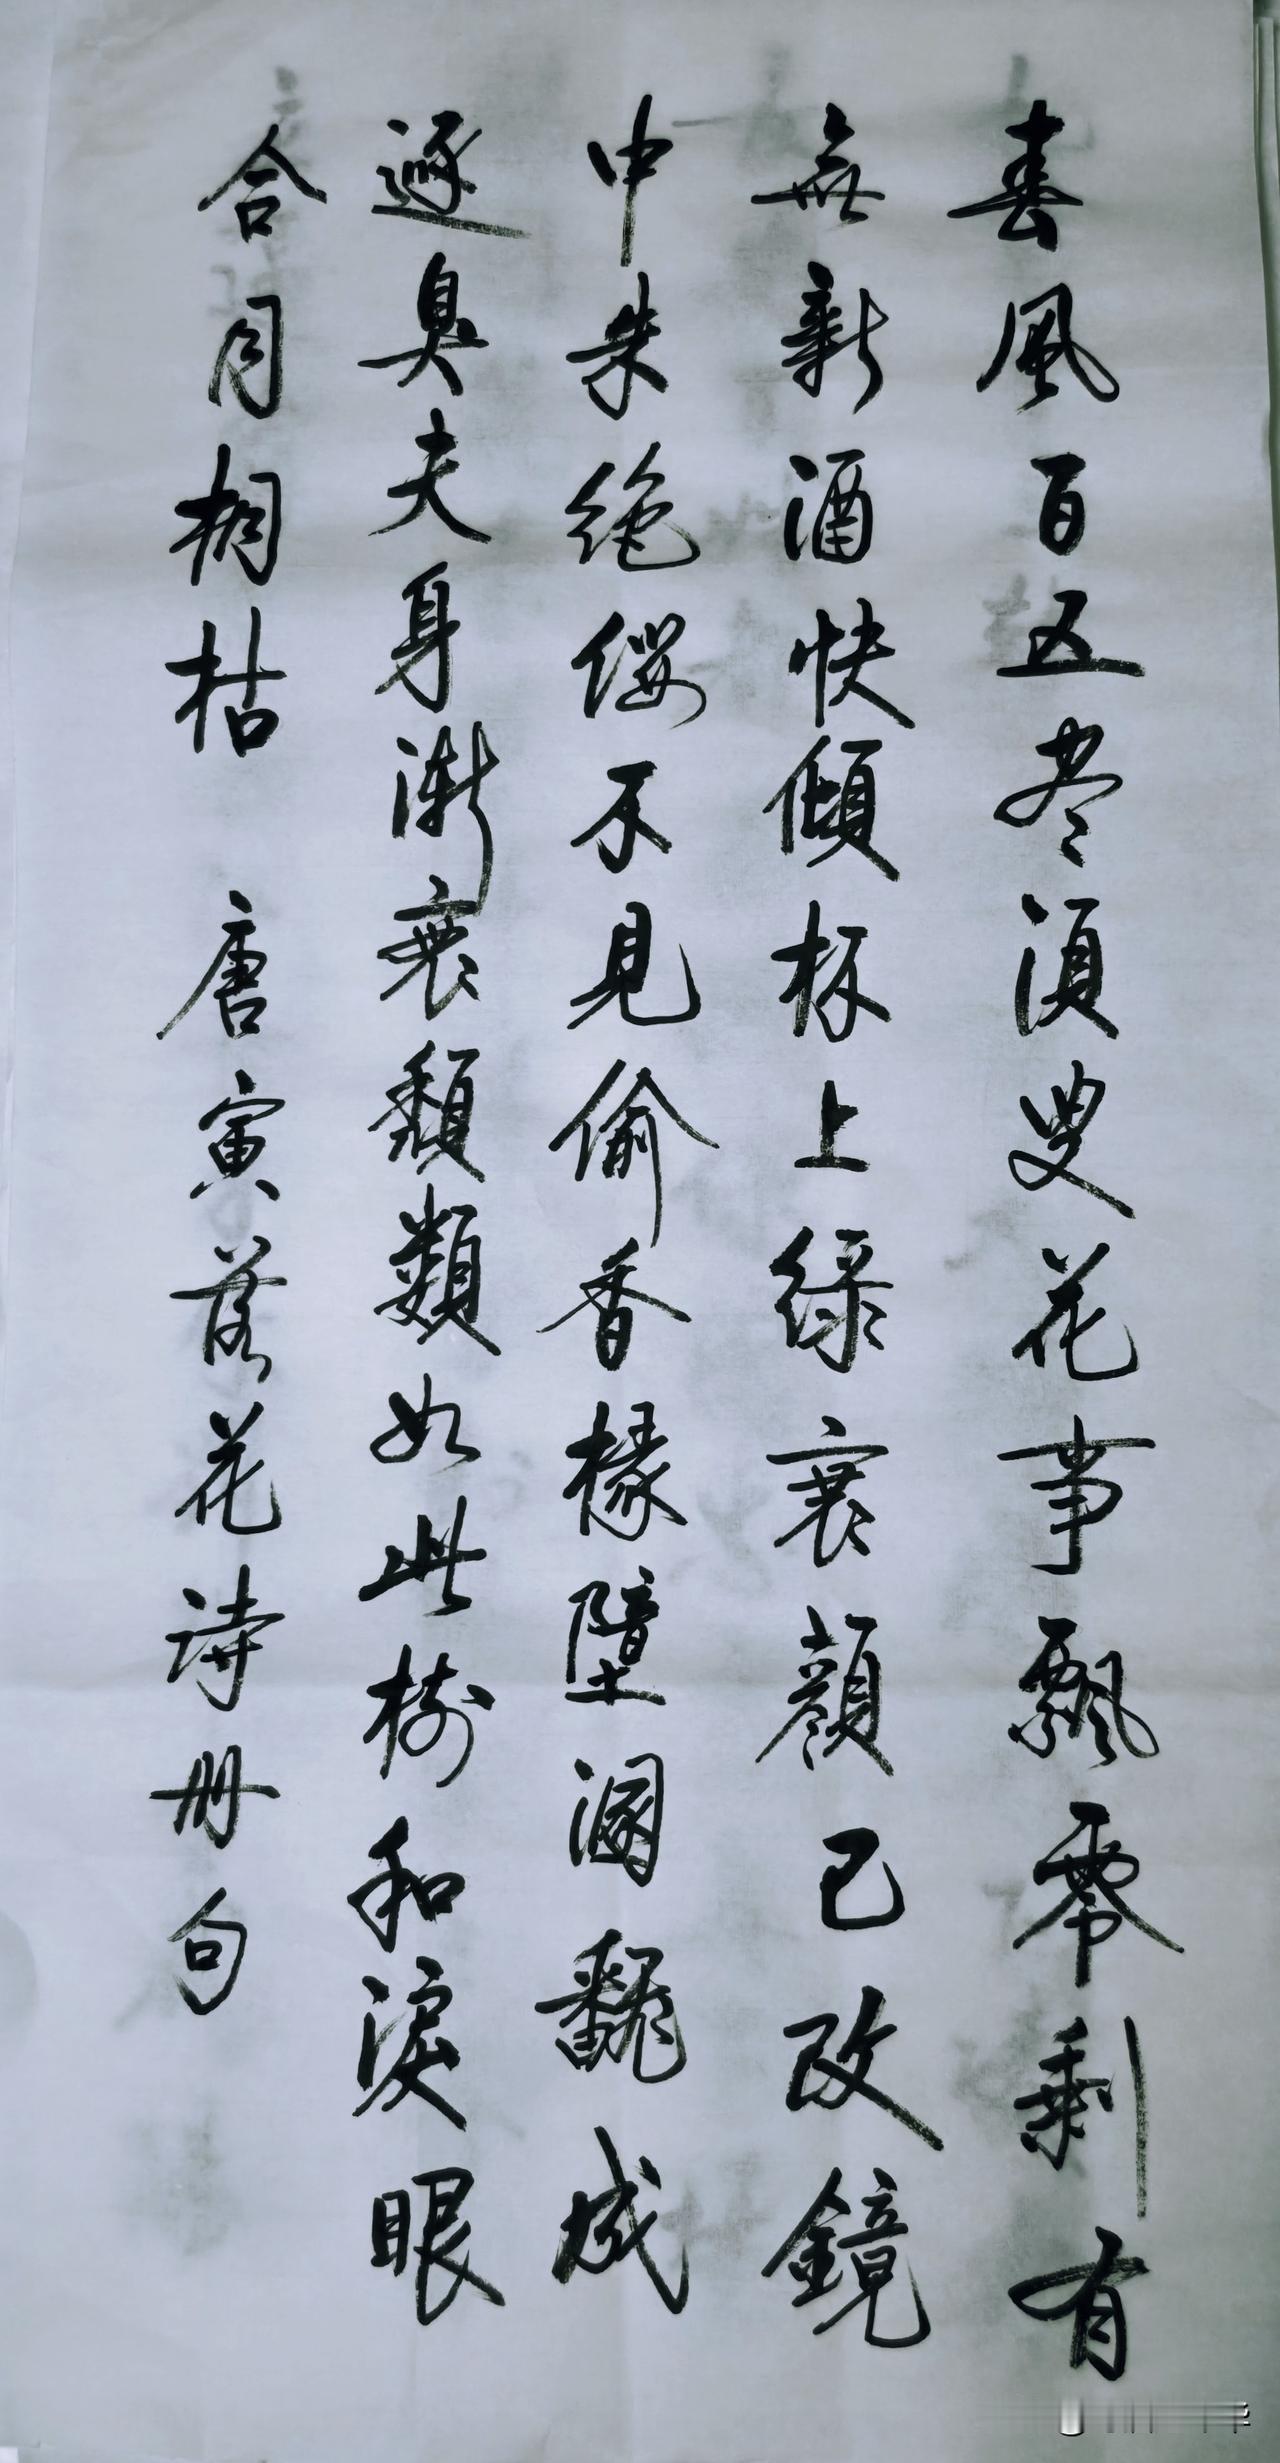 春風百五尽須叟花事飄零剩有
無新酒快傾杯上绿衰顔已改鏡
中朱绝缨不見偷香椽墮溷翻成
逐臭夫身漸衰頽類如此樹和淚眼
合同相枯 唐寅落花诗册句